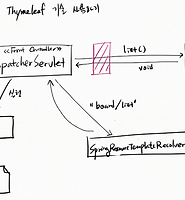 Thymeleaf 기술 사용하기
<<Front Controller>>
patcherServlet
list()
void
"board/list"
SpringResourceTemplateResolver